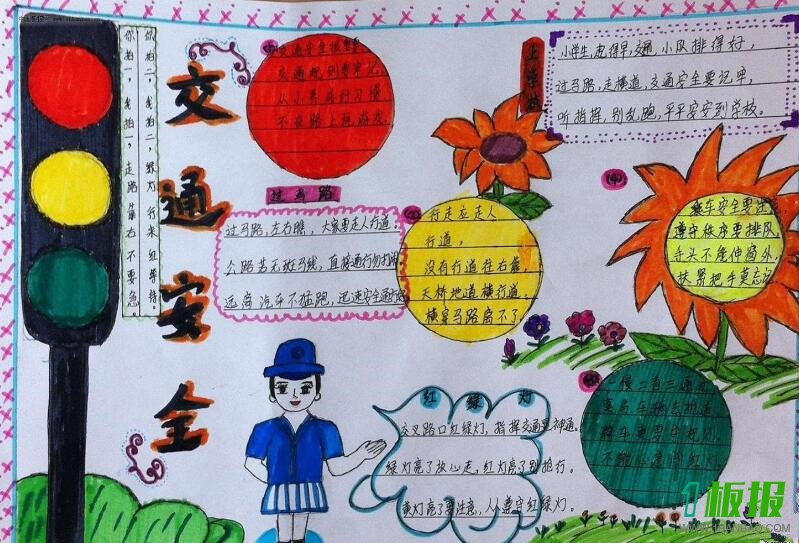 你拍一,我拍一,走路靠右不要急。
你拍二,我拍二,绿灯行来红等待
交通安全
交通安全很重要
交通规则要牢记
从小养成好习惯
不在路上玩游戏
过马路
过马路,左右瞧,大家要走人行道,
公路若无斑马线,直接通行勿打闹
远离汽车不猛跑,迅速安全通行
上学校
小学生,起得早,交通小队排得好,
过马路,走横道,交通安全要记牢
听指挥,别乱跑,平平安安到学校。
行走应走人
行道,
没有行道往右靠
天桥地道横行道,
横穿马路离不了
乘车安全要注
遵守秩序要排队,
手头不能伸窗外,
扶紧把手莫忘记
红绿灯
交叉路口红绿灯,指挥交通显神通。
绿灯亮了放心走,红灯亮了别抢行。
黄灯亮了要注意,人人遵守红绿灯。
一慢二看三通过
莫与车辆去抢道
骑车更要
不能心急闯红灯
板报